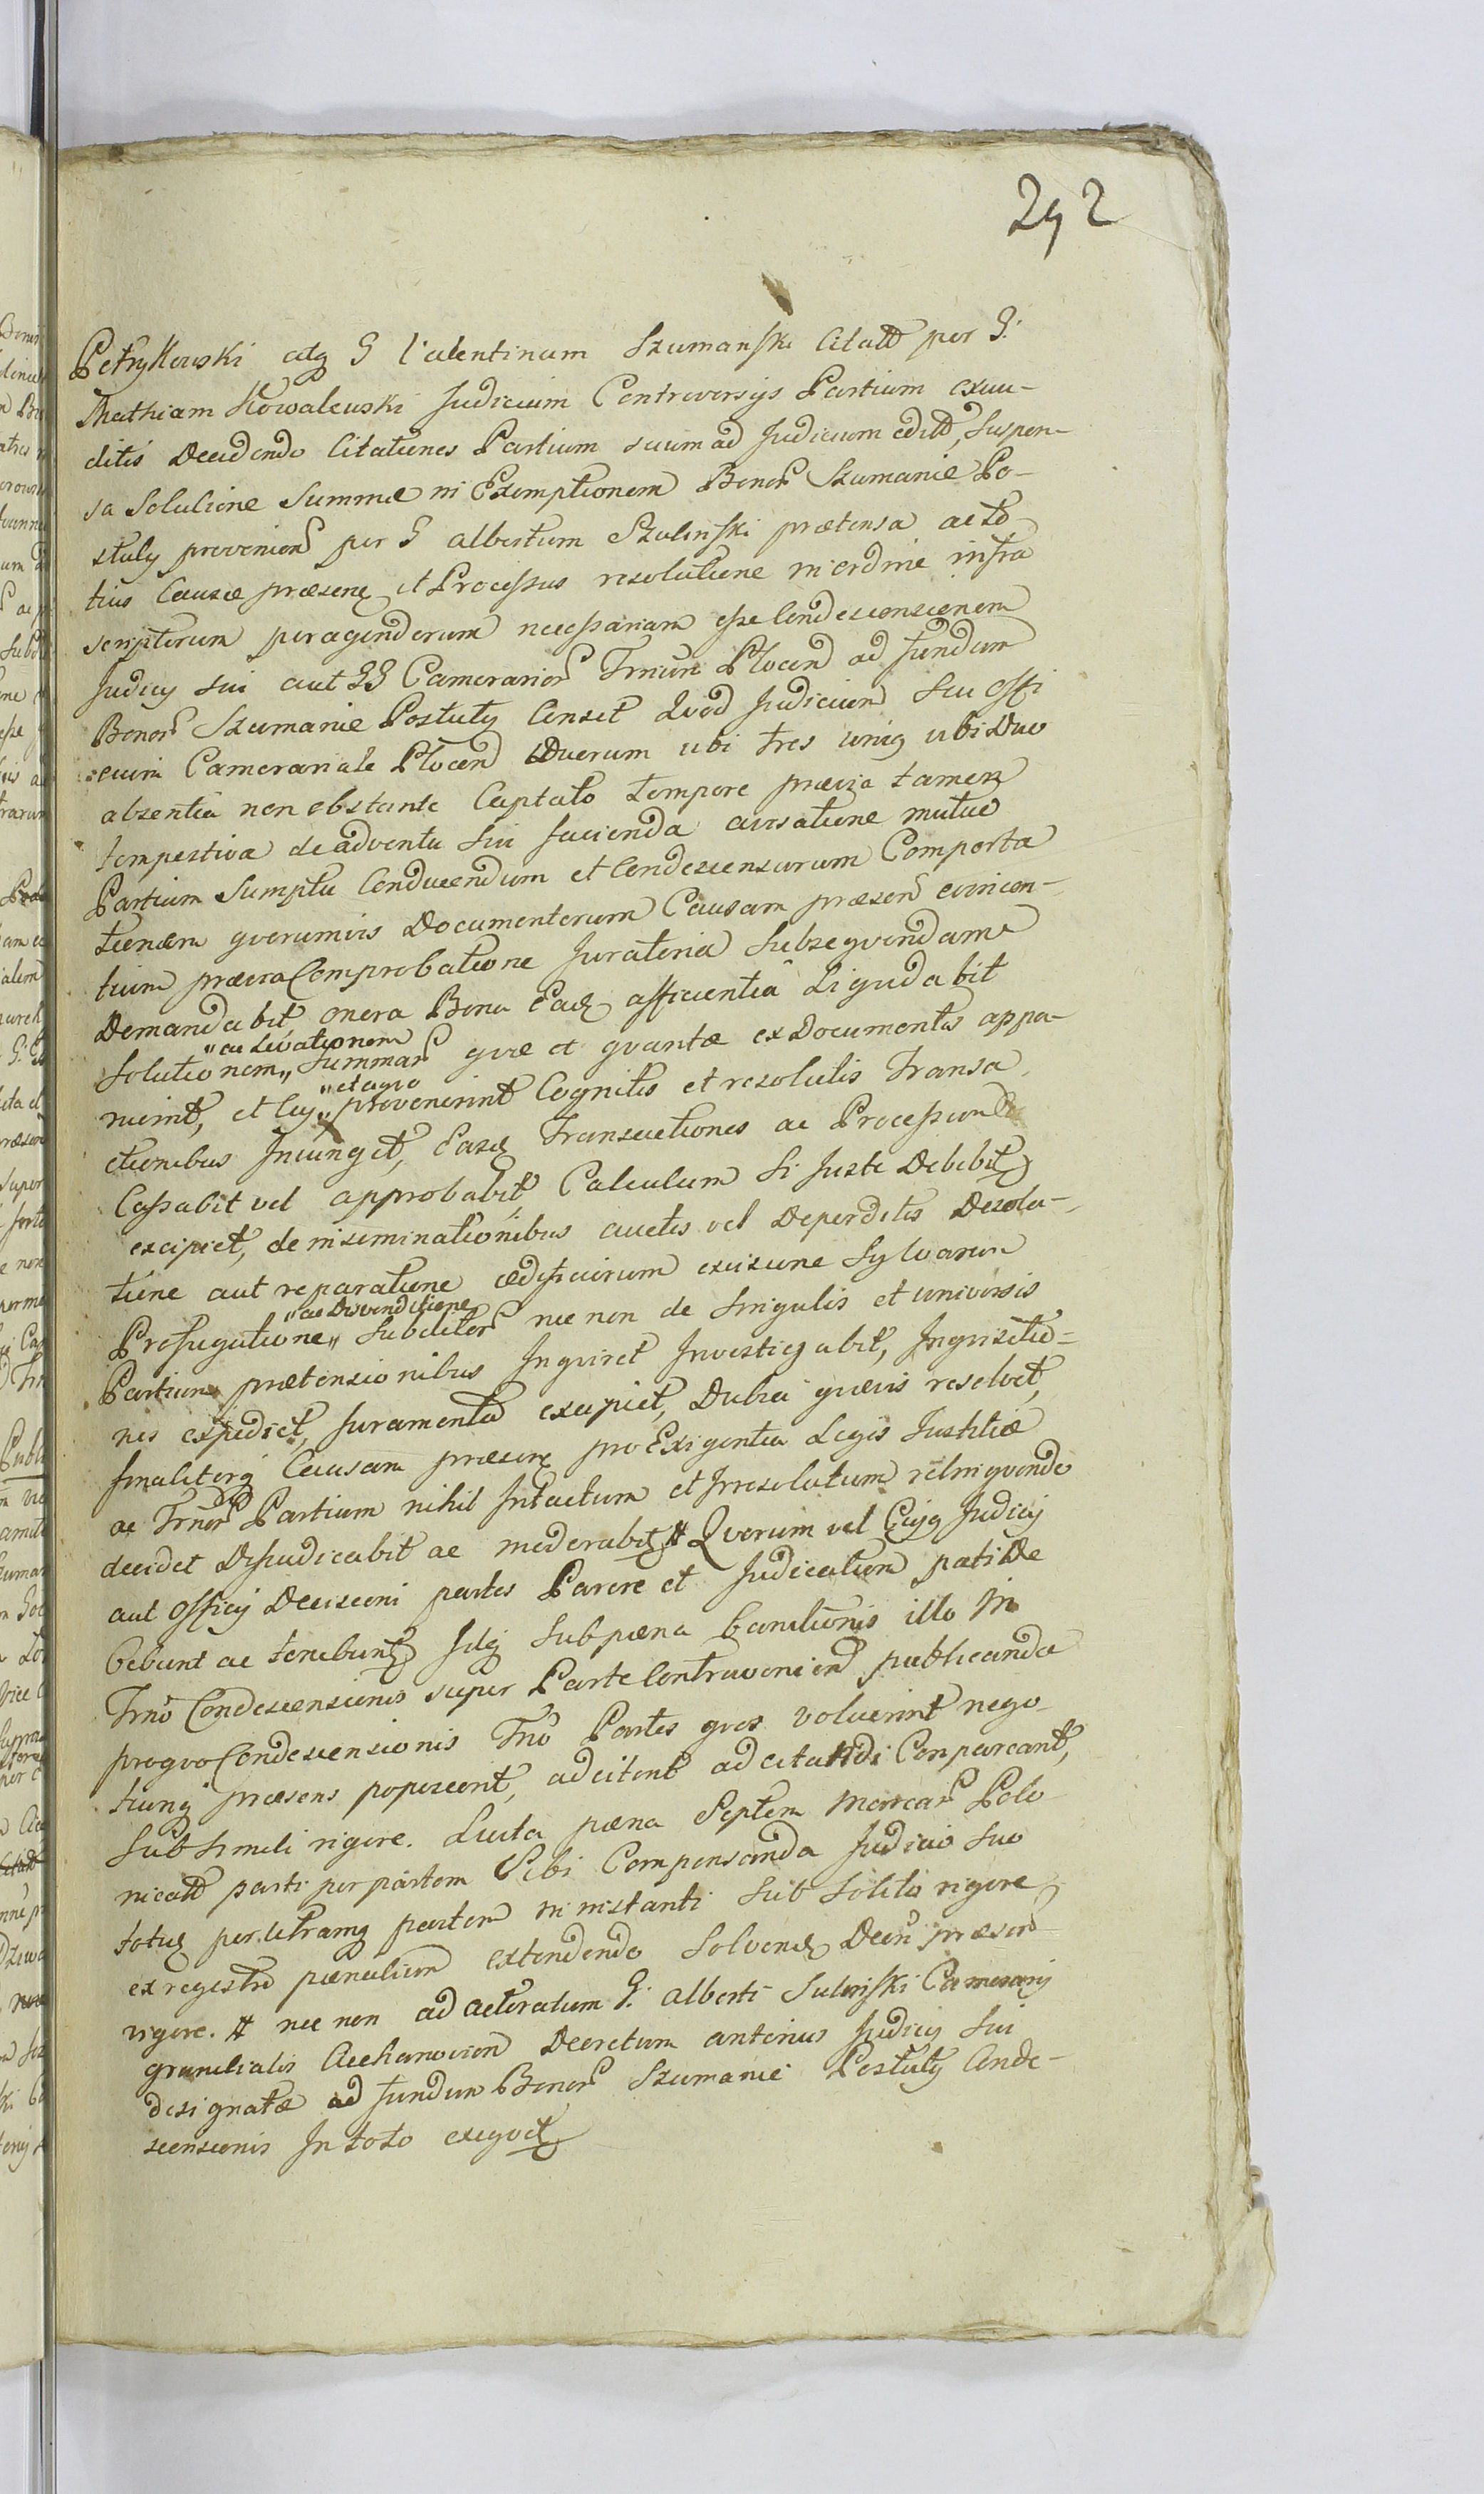 292
Petrykowski atq G Valentinum Szumanski Citatt per G.
Mathiam Kowalewski Judicium Controversijs Partium exau-
ditis Decidendo Citationes Partium suum ad Judicium editt, Suspen-
sa Solutione Summæ in Exemptionem Bonor Szumanie Po-
stuly provenien per G Albertum Szulinski prætensa ac to-
tius Causæ præsen et Processus resolutione in ordine infra
scriptorum peragendorum necessariam esse Condescensionem
Judicij Sui aut GG Camerarior Trnûm Plocen ad fundum
Bonor Szumanie Postuly Censet Quod Judicium Seu offi
cium Camerariale Plocen Duorum ubi tres unig ubi Duo
absentia non obstante Captato tempore prævia tamen
tempestiva de adventu Sui facienda avisatione mutuo
Partium Sumptu Conducendum et Condescensurum Comporta
tionem quorumvis Documentorum Causam præsen evincen-
tium prævia Comprobatione Juratoria Subsequendam
Demandabit, onera Bona Eadq afficientia Liquidabit
"ac Levationem
Solutionem" Summar quæ et quantæ ex Documentis appa-
"et a quo
ruerint, et Cuj" provenerint Cognitis et resolutis Transa
ctionibus Injunget, Easq Transactiones ac Processum
Cassabit vel approbabit, Calculum Si Juste Debebit
excipiet, de inseminationibus auctis vel Deperditis Desola-
tione aut reparatione ædificiorum excisione Sylvarum
"ac Divenditione
Profugatione" Subditor nec non de Singulis et universis
Partium prætensionibus Inquiret Investigabit, Inquisitio-
nes expediet, Juramenta excipiet, Dubia quævis resolvet,
finaliterq Causam præsen pro Exigentia Legis Justitiæ
ac Trnor Partium nihil Intactum et Irresolutum relinquendo
decidet Disjudicabit ac moderabit # Quorum vel Cujq Judicij
aut officij Decisioni partes Parere et Judicatum pati De
bebunt ac tenebunt Idq Sub pæna banitionis illo in
Trno Condescensionis super Parte Contravenien publicanda
pro quo Condescensionis Trno Partes quos voluerint nego-
tiumq præsens poposcerit, adcitent adcitandi Compareant,
Sub simili rigore. Luita pæna Septem Marcar Polo
nicatt parti per partem Sibi Compensanda Judicio Suo
totuq per utramq partem in instanti Sub Solito rigore
ex regestro pænalium extendendo Solven Decti præsen
rigore. # nec non ad Actoratum G. Alberti Sulinski Camerarij
granicialis Ciechanovien Decretum anterius Judicij Sui
designatæ ad fundum Bonor Szumanie Postuly Conde-
scensionis In toto exequet